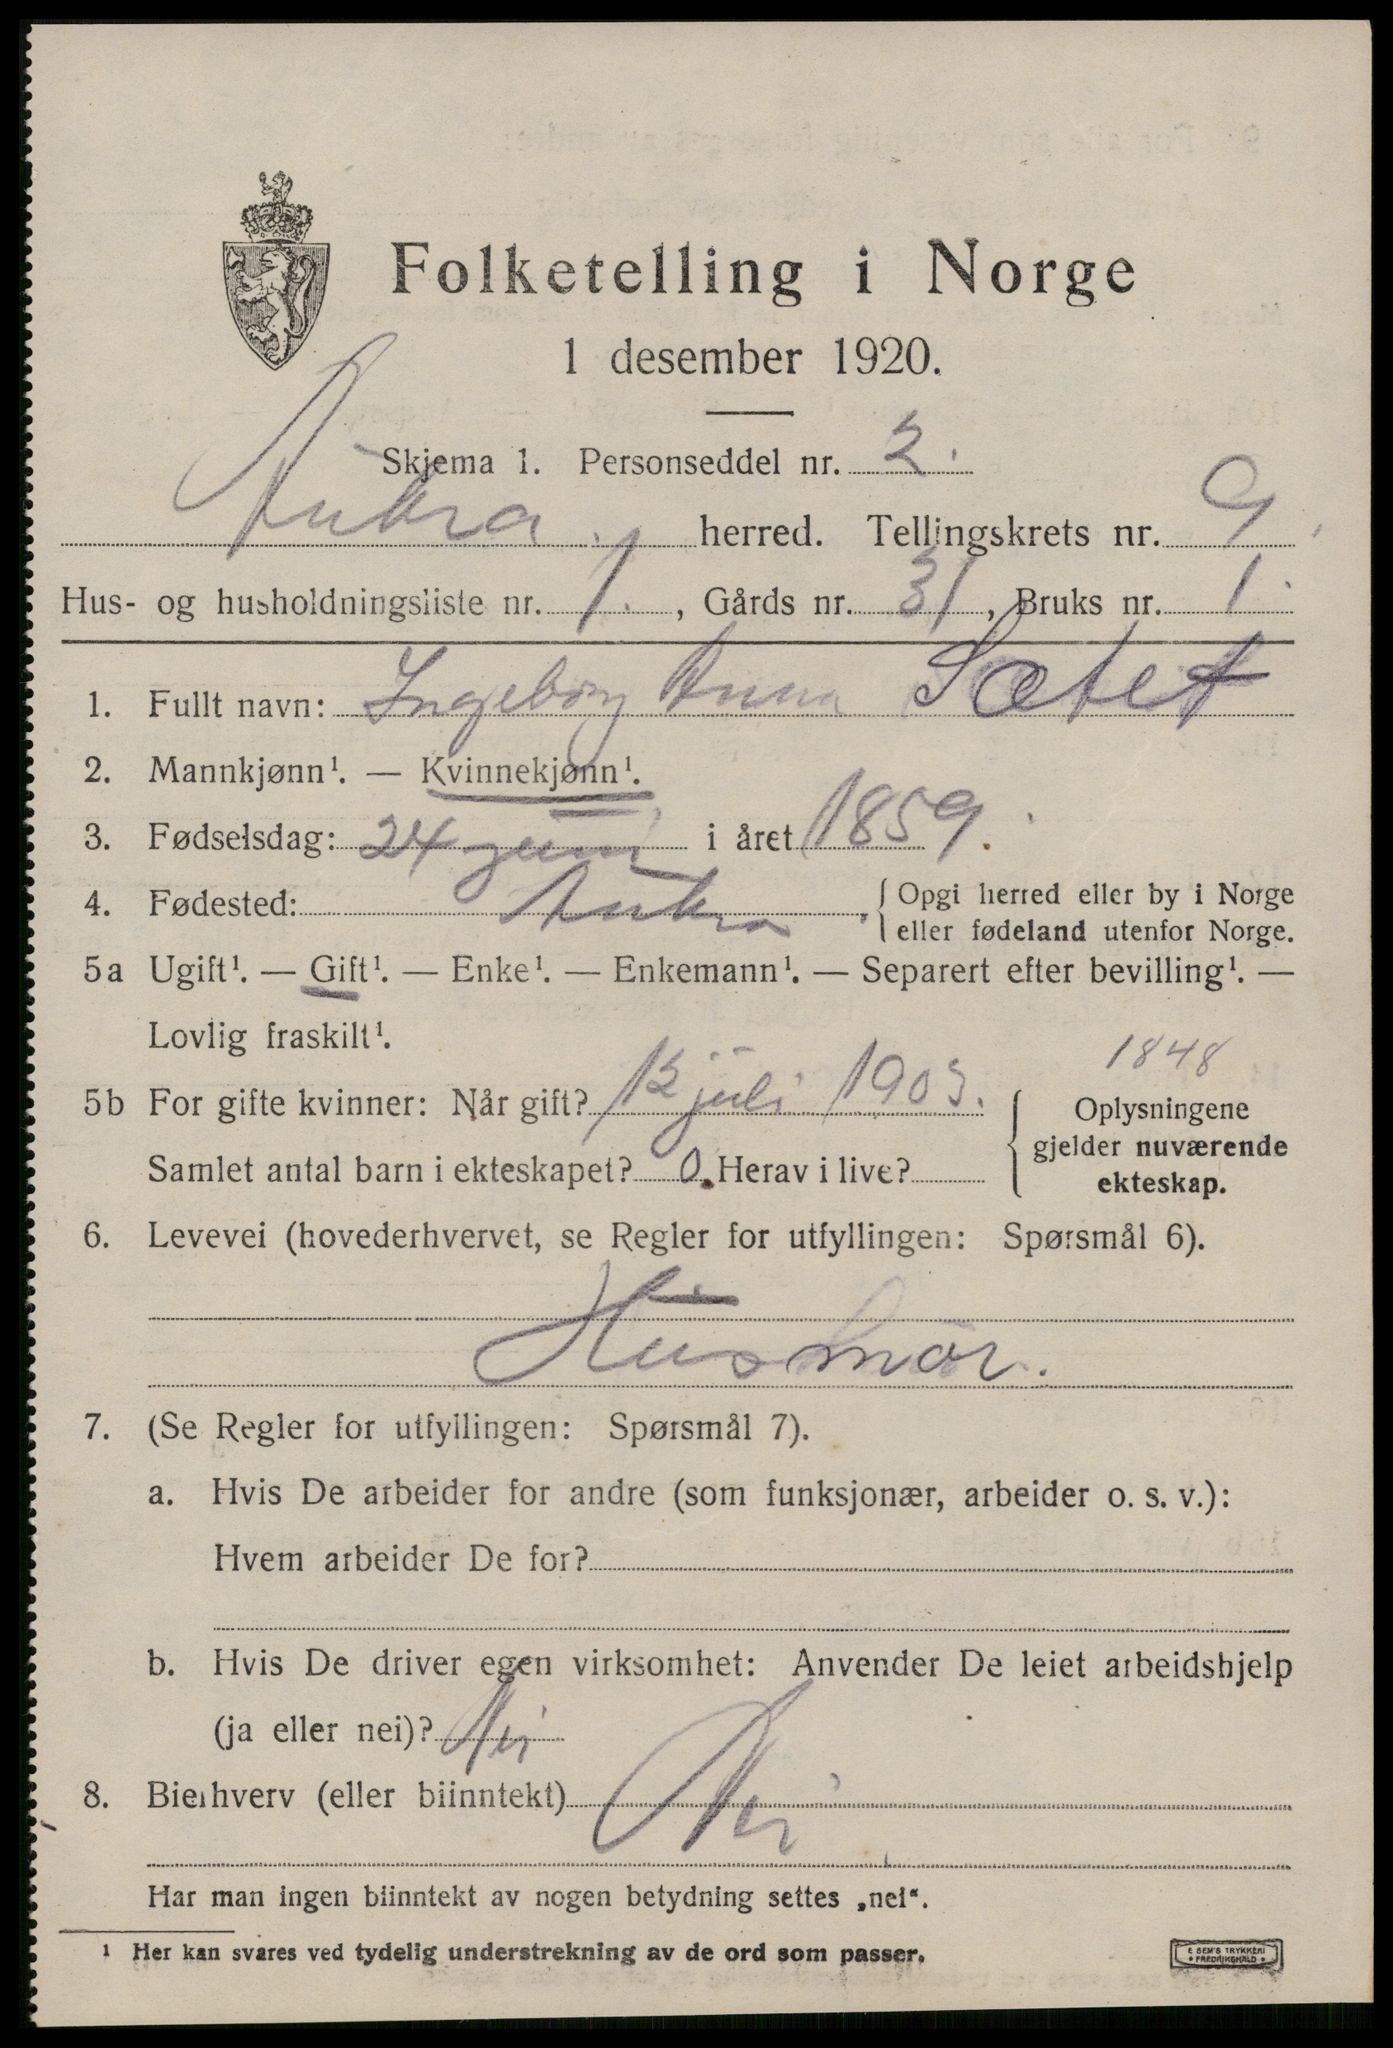 Folketelling i Norge
1 desember 1920.
Skjema 1. Personseddel nr. 2.
Aukra herred. Tellingskrets nr. 9.
Hus- og husholdningsliste nr. 1., Gårds nr. 31, Bruks nr. 1.
1. Fullt navn: Ingeborg Anna Sætet
2. Mannkjønn¹. — Kvinnekjønn¹.
3. Fødselsdag: 24 juni i året 1859.
4. Fødested: Aukra. { Opgi herred eller by i Norge
eller fødeland utenfor Norge.
5a Ugift¹. — Gift¹. — Enke¹. — Enkemann¹. — Separert efter bevilling¹. —
Lovlig fraskilt¹.
1848
5b For gifte kvinner: Når gift? 12 juli 1903.
Samlet antal barn i ekteskapet? 0. Herav i live?
{ Oplysningene
gjelder nuværende
ekteskap.
6. Levevei (hovederhvervet, se Regler for utfyllingen: Spørsmål 6).
Husmor.
7. (Se Regler for utfyllingen: Spørsmål 7).
a. Hvis De arbeider for andre (som funksjonær, arbeider o. s. v.):
Hvem arbeider De for?
b. Hvis De driver egen virksomhet: Anvender De leiet arbeidshjelp
(ja eller nei)? Nei
8. Bierhverv (eller biinntekt) Nei
Har man ingen biinntekt av nogen betydning settes „nei“.
¹ Her kan svares ved tydelig understrekning av de ord som passer.
E SEM'S TRYKKERI
* FREDRIKSHALD *